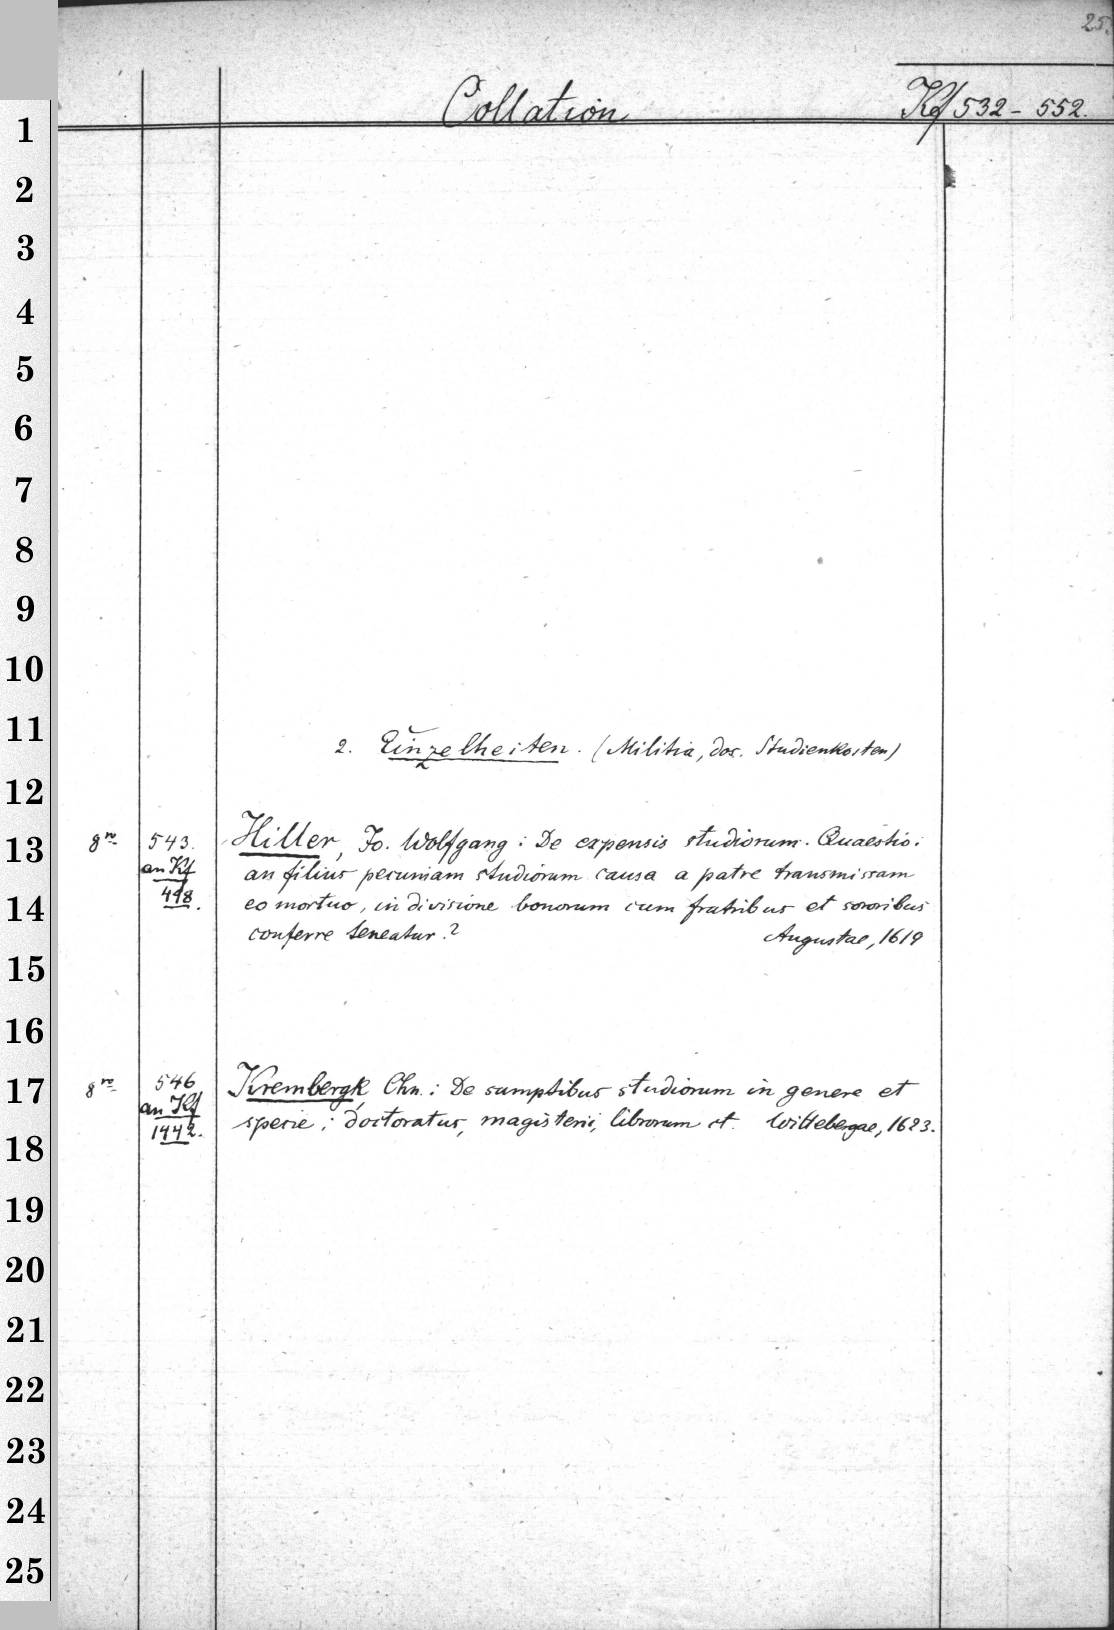 25.
Collation
Kf 532 - 552.
1
2
3
4
5
6
7
8
9
10
11
2. Einzelheiten. (Militia, doc. Studienkosten)
12
13
8ro 543. Hiller, Jo. Wolfgang: De expensis studiorum. Quaestio:
an Kf an filius pecuniam studiorum causa a patre transmissam
14
498. eo mortuo, in divisione bonorum cum fratribus et sororibus
conferre teneatur? Augustae, 1619
15
16
17
8ro 546 Krembergk, Chn.: De sumptibus studiorum in genere et
an Kf specie; doctoratus, magisterii, librorum et. Wittebergae, 1623.
1442.
18
19
20
21
22
23
24
25